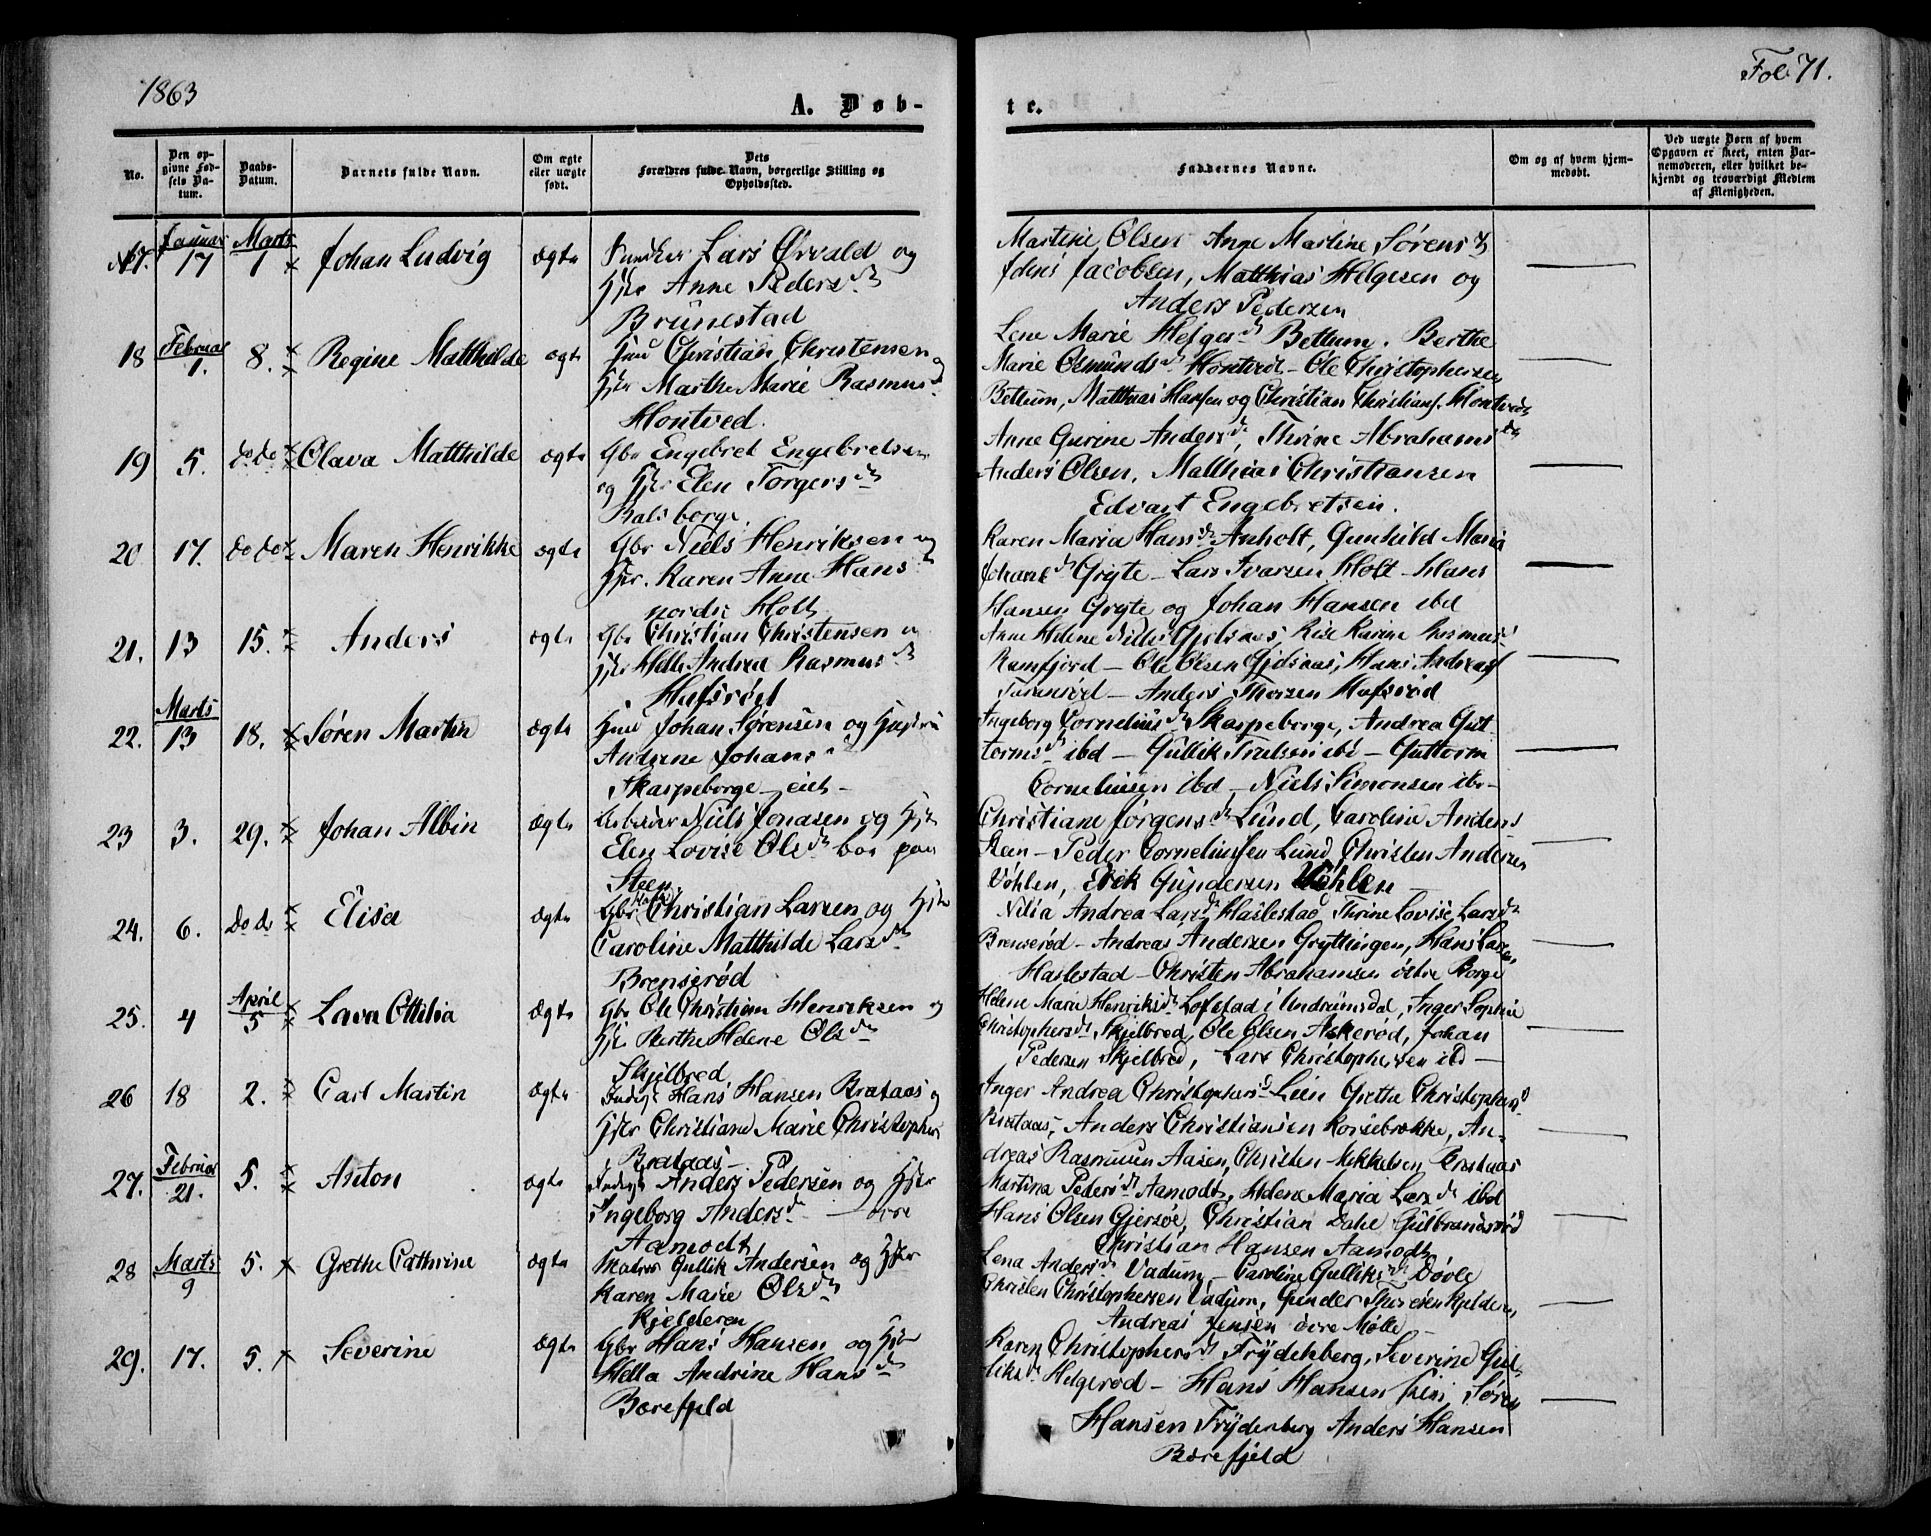 1863
A. Døb-
No.
Den op-
givne Fød-
sels Da-
tum.
Daabs-
Datum.
Barnets fulde Navn.
Om ægte
eller uægte
født.
Dets
Forældres fulde Navn, borgerlige Stilling og
Opholdssted.
17. Januar 17 Marts 1 Johan Ludvig ægte Lars Ørvald og
Hst Anne Peders dt
Brunestad
18 Februar 1. 8. Regine Matthilde ægte Christian Christensen og
Marthe Marie Rasmus
Hontved.
19 5. do do Olava Matthilde ægte Gbr Engebret Engebretsen
og Elen Torgers dt
Balsborge.
20 17. do do Maren Henrikke ægte Gbr Niels Henriksen og
Karen Anne Hans
nordre Holt
21. 13 15. Anders ægte Gbr Christian Christensen og
Helle Andrea Rasmus dt
Hafsrød
22. Marts 13 18. Søren Martin Ægte Johan Sørensen og Hustru
Andrine Johans
Skarpeborge - eiet -
23 3. 29. Johan Albin Ægte Arbeider Niels Jonasen og
Elen Lovise Ols dt boe paa
Steen.
24. 6. do do Elisa Ægte Gbr Christian Larsen og
Caroline Matthilde Lars dt
Brenserød
25. 4 April 5 Lava Ottilia Ægte Gbr Ole Christian Henriksen og
Berthe Helene Ols dt
Skjelbred
26 18 2. Carl Martin Ægte Hans Hansen Brataas og
Christiane Marie Christophers
Brataas -
27. Februar 21. 5. Anton ægte Anders Pedersen og
Ingeborg Anders dt - øvre
Aamodt
28 Marts 9 5. Grethe Cathrine Ægte Matros Gullik Andersen og
Karen Marie Ols dt
Kjelderen
29. 17. 5. Severine Ægte Gbr Hans Hansen og
Hella Andrine Hans dt
Borefjeld
Fol. 71.
te.
Faddernes Navne.
Om og af hvem hjem-
medøbt.
Ved uægte Børn af hvem
Opgaven er skeet, enten Bar-
nemoderen, eller hvilket be-
kjendt og troværdigt Medlem
af Menigheden.
Olsen Anne Martine Sørens dt
Jens Jacobsen, Matthias Helgesen og
Anders Pedersen
Lene Marie Helges dt Bettum. Berthe
Marie Osmunds dt Hontved - Ole Christophersen
Bettum, Matthias Hansen og Christian Christians. Hontved
Anne Gurine Anders dt, Thrine Abrahams dt
Anders Olsen, Matthias Christiansen
Edvart Engebretsen.
Karen Maria Hans dt Anholt, Gunhild Maria
Johans dt Gryte - Lars Ivarsen Holt - Hans
Hansen Gryte og Johan Hansen ibd
Anne Helene Niels Gjelsaas, Karine Rasmus
Ramfjord - Ole Olsen Gjelsaas, Hans Andreas
- Anders Thorsen Hafsrød
Ingeborg Cornelius dt Skarpeborge, Andrea Gut-
torms dt ibd - Gullik Trulsen ibd - Guttorm
Corneliusen ibd - Niels Simonsen ibd -
Christiane Jørgens dt Lund, Caroline Anders
Steen - Peder Corneliussen Lund, Christen Andersen
Vøhlen, Erik Gundersen Vøhlen -
Nilia Andrea Lars dt Haslestad Thrine Lovise Lars dt
Brenserød - Andreas Andersen Gryttingen, Hans Larsen
Haslestad - Christen Abrahamsen østre Borge
Helene Marie Henriks dt Lofstad i Undrumsdal, Inger Sophie
Christophers dt Skjelbred, Ole Olsen Askerød, Johan
Pedersen Skjelbred, Lars Christophersen ibd -
Inger Andrea Christophers dt Lein Grethe Christophers dt
Brataas, Anders Christiansen Korsebrække, An-
dreas Rasmusen Aasen, Christen Mikkelsen Brataas
Martina Peders dt Aamodt, Helene Maria Lars dt ibd
Hans Olsen Gjersøe, Christian Dahl Gulbrandsrød
Christian Hansen Aamodt
Lena Anders dt Vadum, - Caroline Gulliks dt Døvle
Christen Christophersen Vadum, Gunder Thoresen Kjelderen,
Andreas Jensen øvre Mølle -
Karen Christophers dt Frydenberg, Severine Gul-
liks dt Helgerød - Hans Hansen Søren
Hansen Frydenberg Anders Hansen
Borefjeld